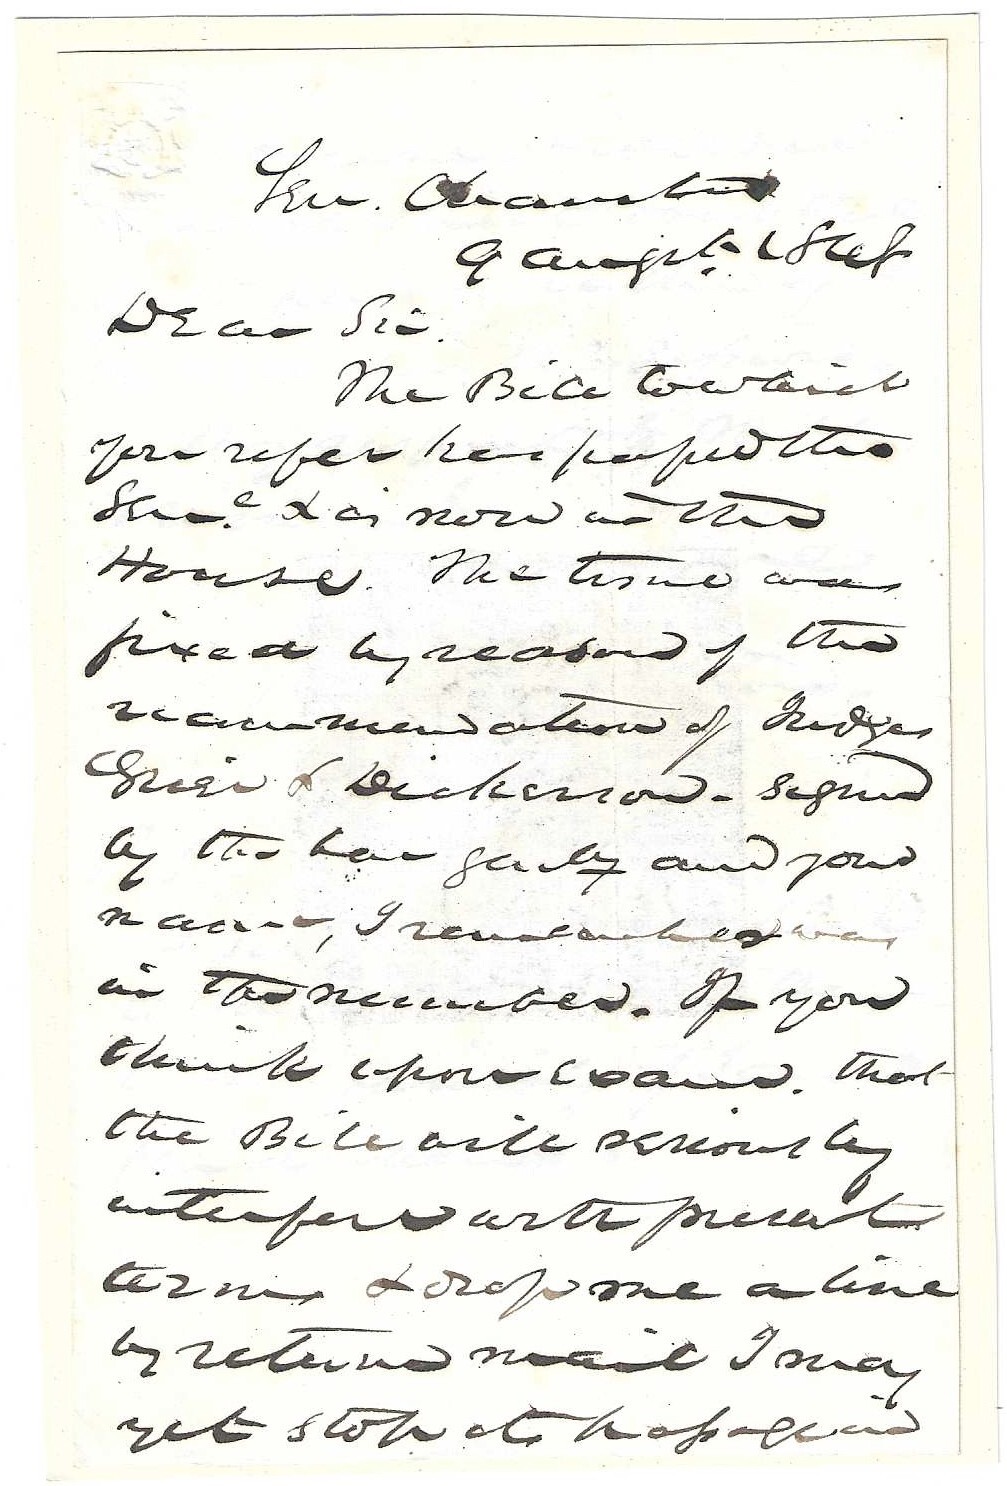 Sen. Chamber
9 Augst. 1848
Dear Sir.
The Bill to which
you refer has passed the
Sene. & is now in the
House. The time was
fixed by reason of the
recommendation of Judges
Grier & Dickerson - signed
by the bar genly and your
name, I remember was
in the number. If you
think upon exam. that
the Bill will seriously
interfere with present
terms & drop me a line
by return mail I may
yet stop its passage in